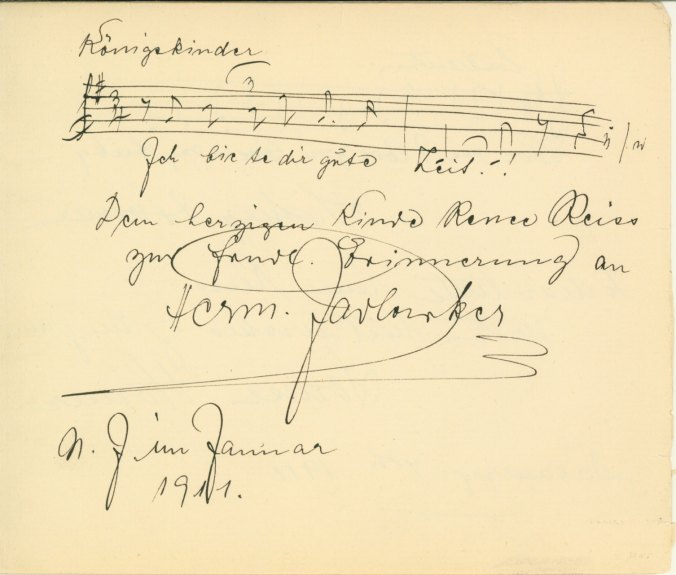 Königskinder
3
Ich biete dir gute Zeit.-!
Dem herzigen Kinde Renee Reiss
zur frndl. Erinnerung an
Herm. Jadlowker
N. J im Januar
1911.